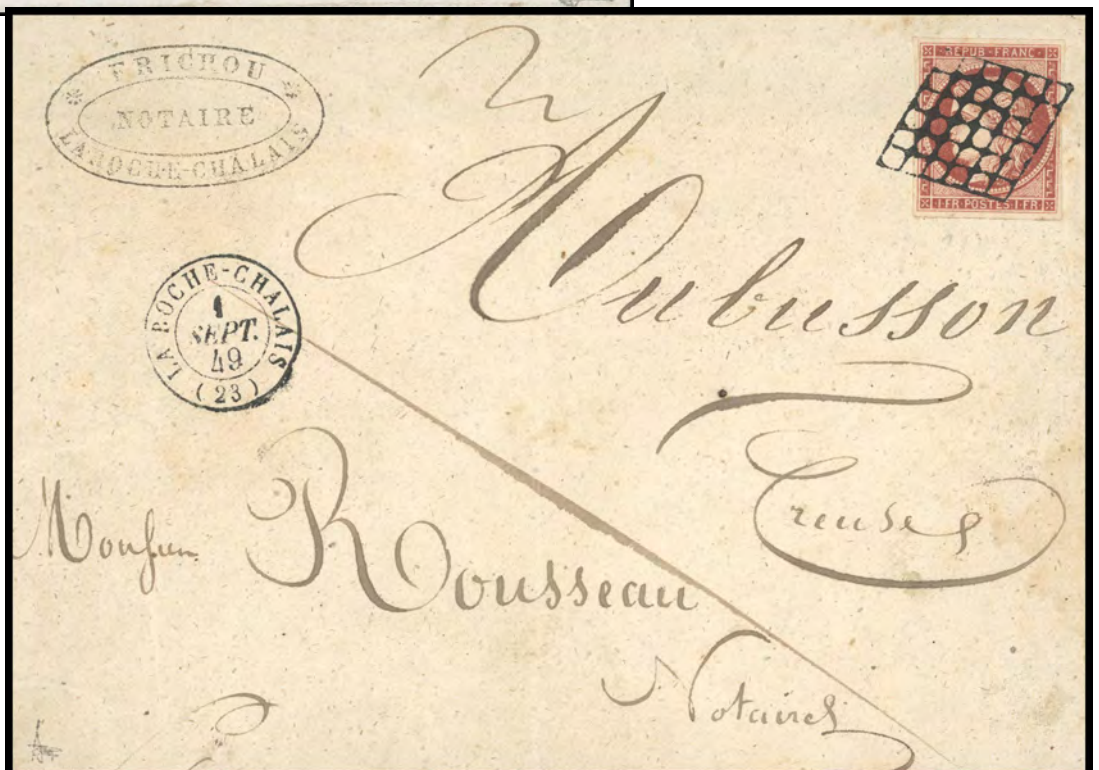 FRICHOU
NOTAIRE
LAROCHE-CHALAIS
REPUB-FRANC
1 FR POSTES 1 FR
Aubusson
LA ROCHE-CHALAIS
1
SEPT.
49
(23)
Creuse
Monsieur Rousseau
Notaire